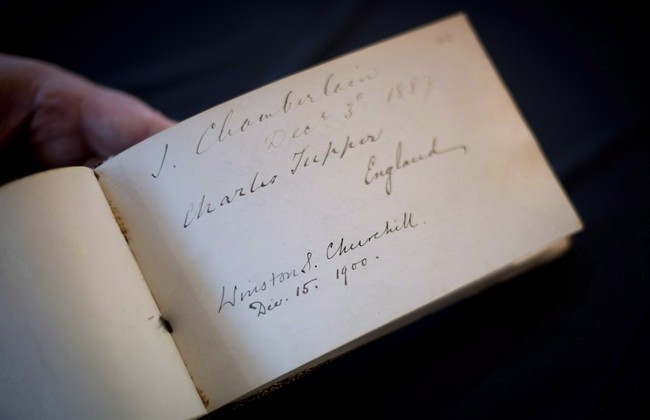 J. Chamberlain
Decr. 3d. 1887
Charles Tupper
England
Winston S. Churchill.
Dec. 15. 1900.